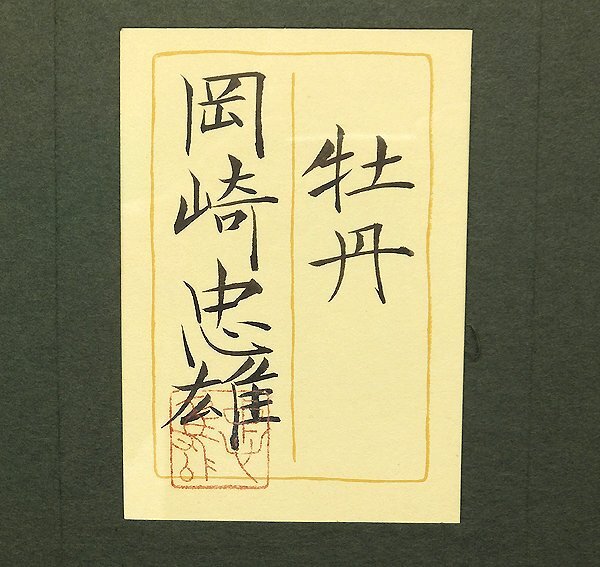 牡丹
岡崎忠雄